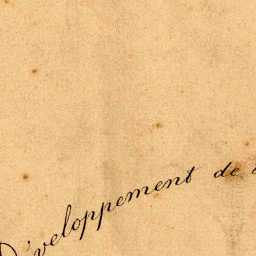 Développement de